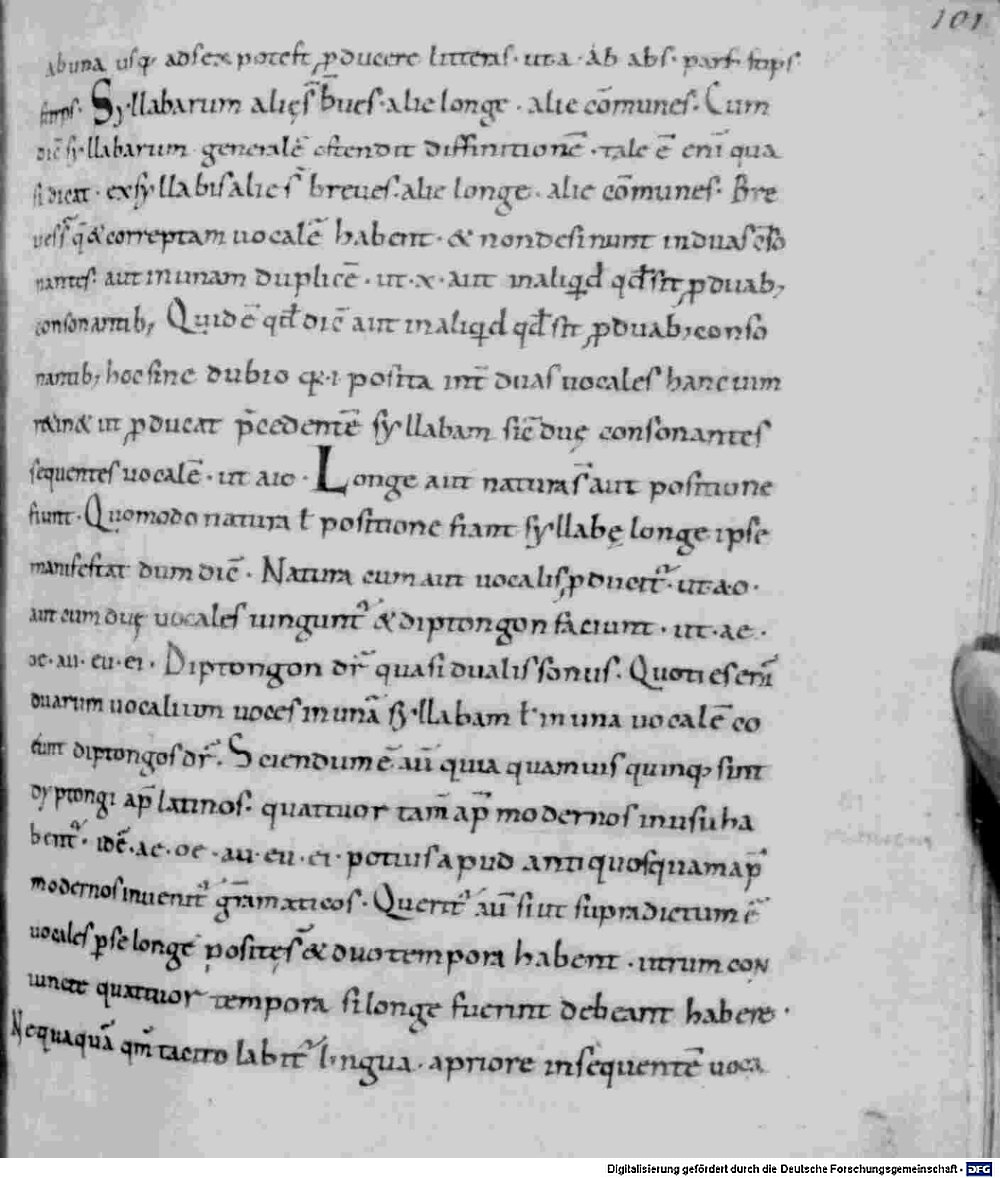 101
abuna usq; ad sex potest p̄ducere litteras · ut · a · ab abs · pars · stirps
stirps · Syllabarum alię s̄ b̄ues · alie longe · alie cōmunes · Cum
dic̄ syllabarum generalē ostendit diffinitionē · tale ē eni qua
si dicat · ex syllabis alie s̄ breves · alie longe · alie cōmunes · Bre
ues s̄ q̄ & correptam uocalē habent · & non desinunt in duas c̄so
nantes · aut in unam duplicē · ut · x · aut in aliqd qd̄ sit p̄ duab;
consonantib; Quid ē qd̄ dic̄ aut in aliqd qd̄ sit p̄ duab; conso
nantib; hoc sine dubio · i · posita int̄ duas uocales hanc uim
ut p̄ducat p̄cedentē syllabam sic̄ duę consonantes
sequentes uocalē · ut aio · Longe aut natura s̄ aut positione
fiunt · Quomodo natura ł positione fiant syllabę longe ipse
manifestat dum dic̄ · Natura cum aut uocalis p̄ducit᷑ · ut · a · o ·
aut cum duę uocales iungunt᷑ & diptongon faciunt · ut · ae ·
oe · au · eu · ei · Diptongon dr᷑ quasi dualis sonus · Quoties eni
duarum uocalium uoces in unā syllabam ł in una uocalē co
eunt diptongos dr᷑ · Sciendum ē aū quia quamuis quinq; sint
dyptongi ap̄ latinos · quattuor tam̄ ap̄ modernos in usu ha
bent᷑ · idē · ae · oe · au · eu · ei · potius apud antiquos quam ap̄
modernos inuenit᷑ grāmaticos · Querit᷑ aū si ut supradictum ē
uocales p̱ se longe positę s̄ & duo tempora habent · utrum con
iuncte quattuor tempora si longe fuerint debeant habere ·
Nequaquā qm̄ tacito labit᷑ lingua · a priore in sequentē uoca
Digitalisierung gefördert durch die Deutsche Forschungsgemeinschaft - DFG